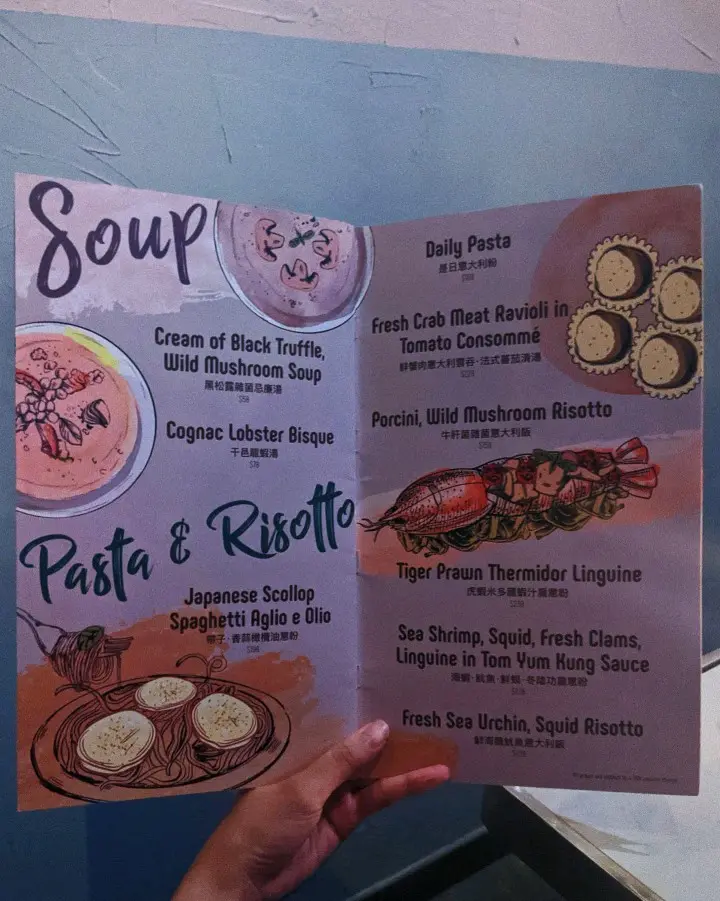 Soup
Cream of Black Truffle,
Wild Mushroom Soup
黑松露雜菌忌廉湯
Cognac Lobster Bisque
干邑龍蝦湯
Pasta & Risotto
Japanese Scollop
Spaghetti Aglio e Olio
帶子·香蒜橄欖油意粉
Daily Pasta
是日意大利粉
Fresh Crab Meat Ravioli in
Tomato Consommé
鮮蟹肉意大利雲吞·法式蕃茄清湯
Porcini, Wild Mushroom Risotto
牛肝菌雜菌意大利飯
Tiger Prawn Thermidor Linguine
虎蝦米多龍蝦汁扁意粉
Sea Shrimp, Squid, Fresh Clams,
Linguine in Tom Yum Kung Sauce
海蝦·魷魚·鮮蜆·冬陰功扁意粉
Fresh Sea Urchin, Squid Risotto
鮮海膽魷魚意大利飯